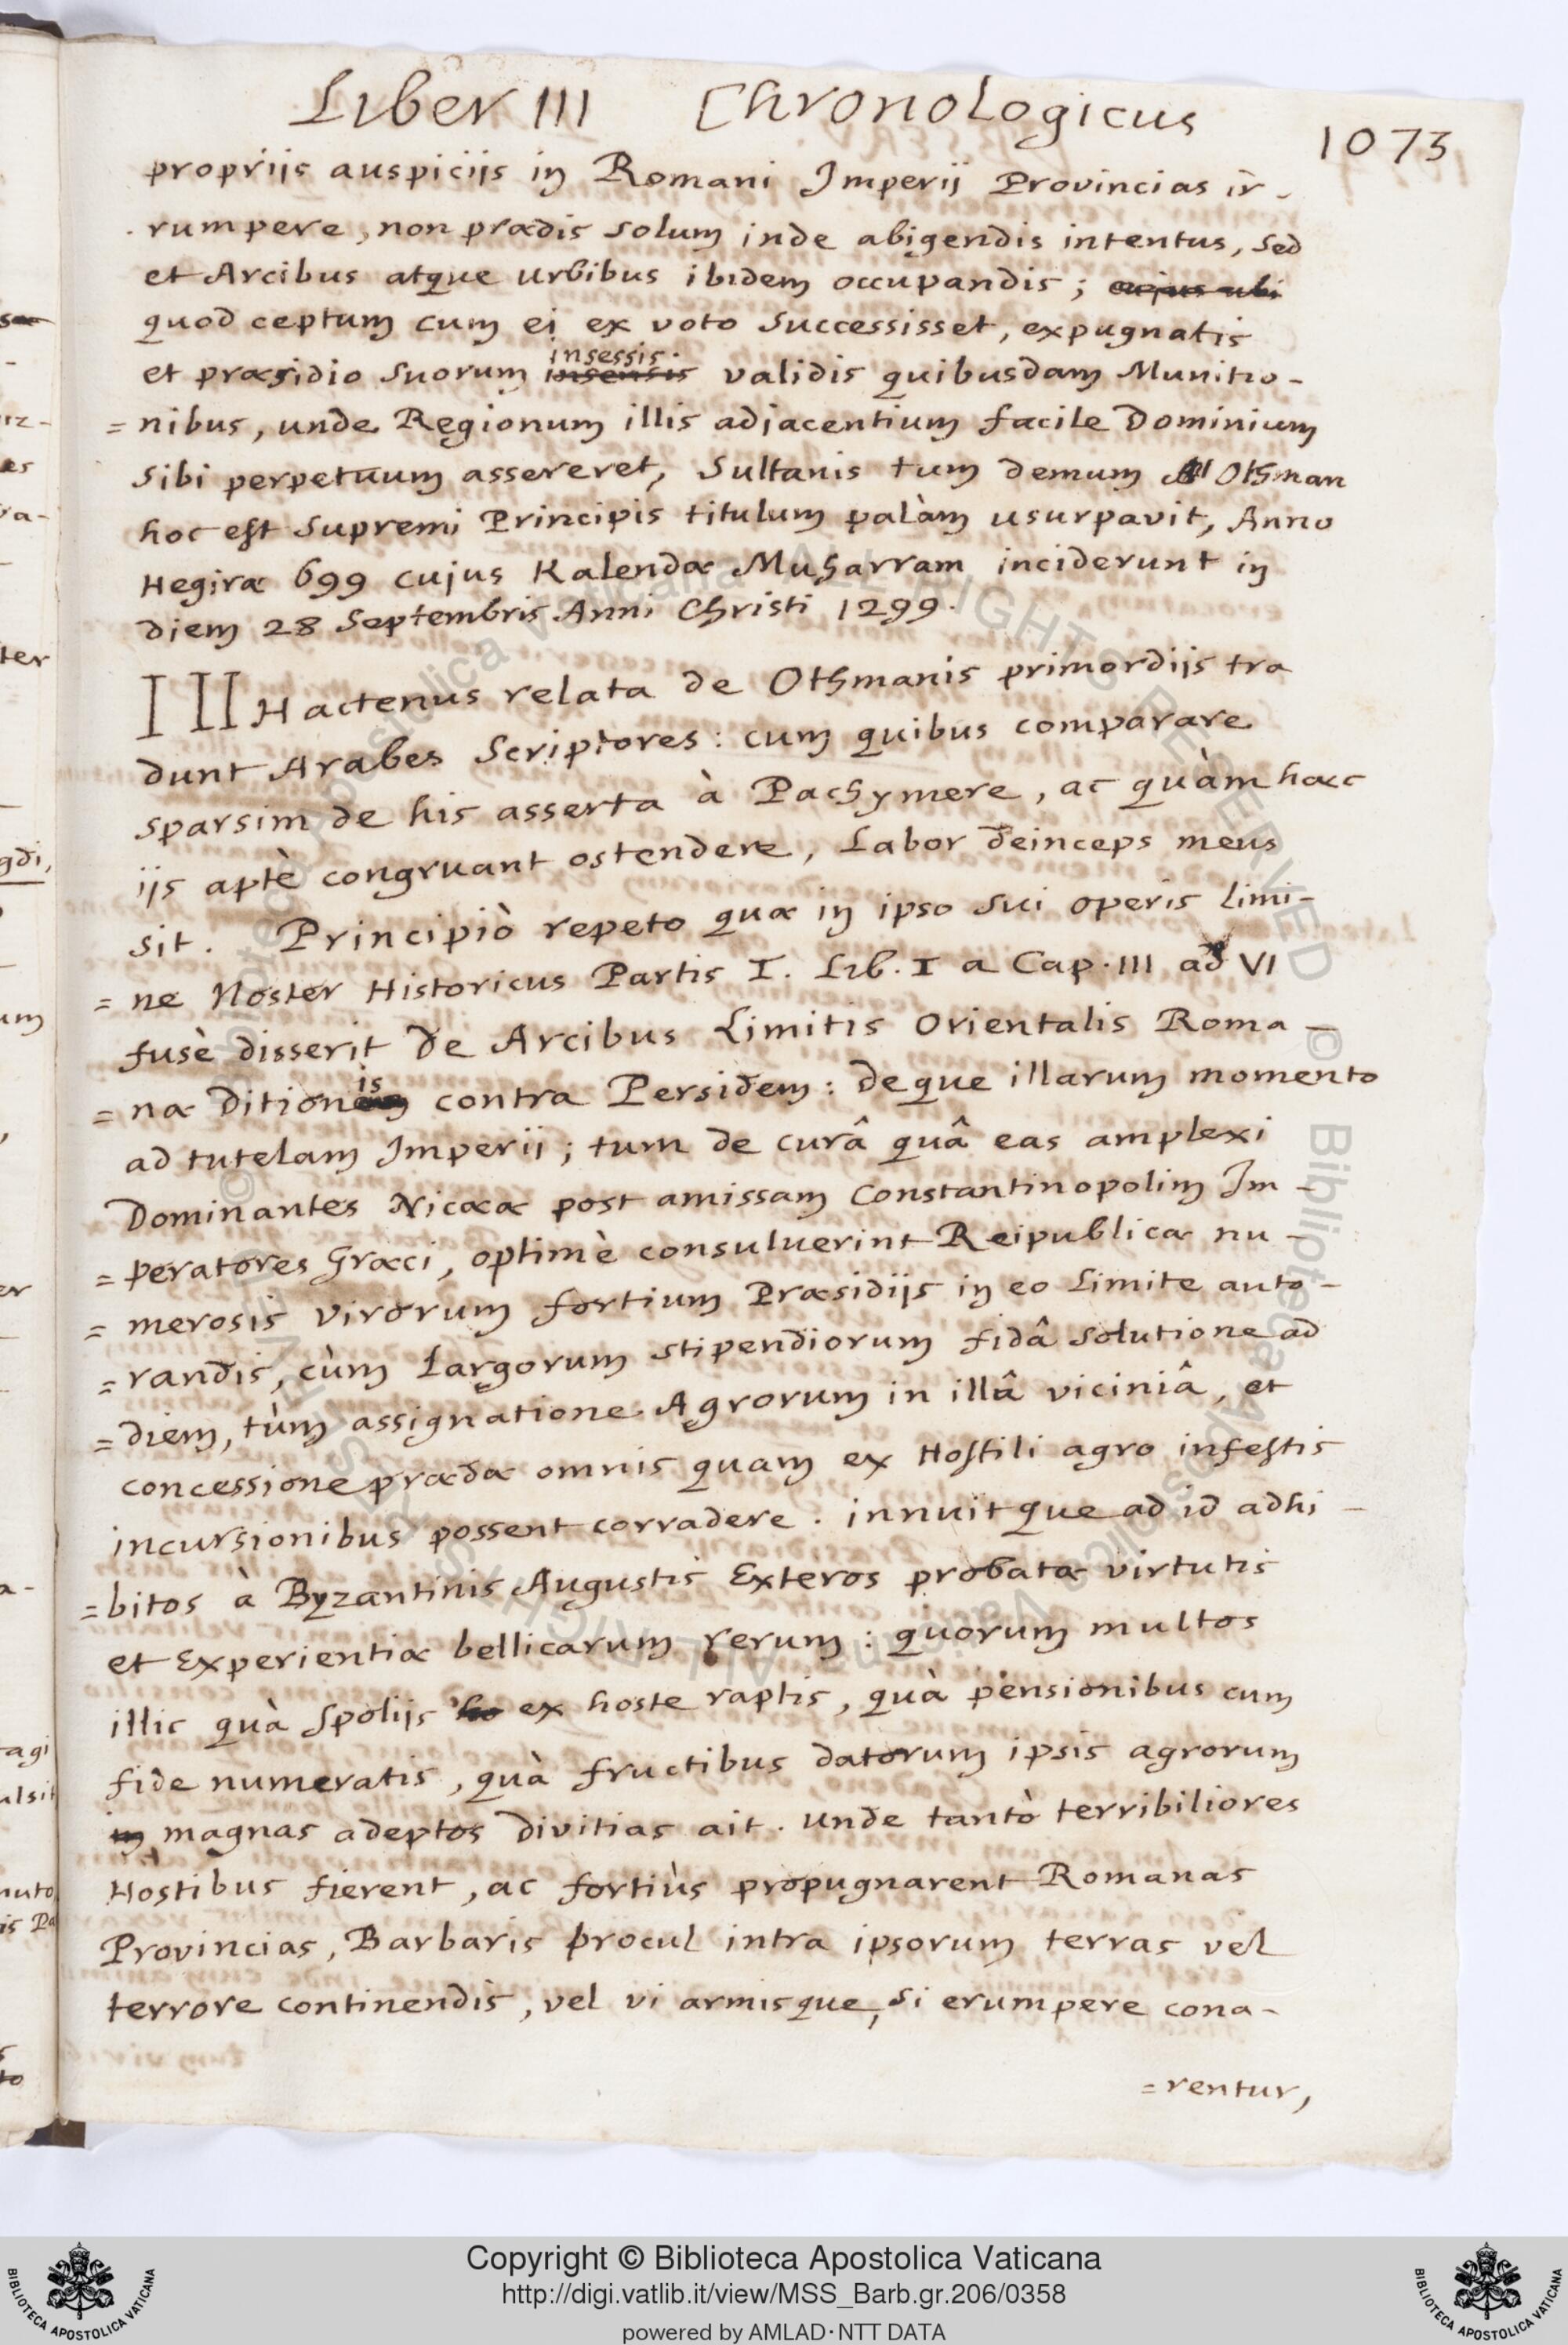 Liber III Chronologicus
1073
proprijs auspicijs in Romani Imperij Provincias ir-
rumpere, non prædis solum inde abigendis intentus, sed
et Arcibus atque urbibus ibidem occupandis; cujus ubi
quod ceptum cum ei ex voto successisset, expugnatis
insessis.
et præsidio suorum insensis validis quibusdam Munitio-
=nibus, unde Regionum illis adjacentium facile Dominium
sibi perpetuum assereret, Sultanis tum demum Othman
hoc est supremi Principis titulum palàm usurpavit, Anno
Hegiræ 699 cujus Kalendæ Muharram inciderunt in
diem 28 Septembris Anni Christi 1299.
III Hactenus relata de Othmanis primordijs tra
dunt Arabes Scriptores: cum quibus comparare
sparsim de his asserta à Pachymere, ac quàm hæc
ijs aptè congruant ostendere, Labor deinceps meus
sit. Principiò repeto quæ in ipso sui operis limi-
=ne Noster Historicus Partis I. Lib. I a Cap. III ad VI
fusè disserit de Arcibus Limitis Orientalis Roma-
is
=næ Ditionem contra Persidem: deque illarum momento
ad tutelam Imperij; tum de curâ quâ eas amplexi
Dominantes Nicææ post amissam Constantinopolim Im-
=peratores Græci, optimè consuluerint Reipublicæ nu-
=merosis virorum fortium Præsidijs in eo Limite auto-
=randis, cùm Largorum stipendiorum fidâ solutione ad
=diem, tùm assignatione Agrorum in illâ viciniâ, et
concessione prædæ omnis quam ex Hostili agro infestis
incursionibus possent corradere. innuitque ad id adhi-
=bitos à Byzantinis Augustis Exteros probatæ virtutis
et Experientiæ bellicarum rerum: quorum multos
illic quà Spolijs ho ex hoste raptis, quà pensionibus cum
fide numeratis, quà fructibus datorum ipsis agrorum
in magnas adeptos divitias ait. Unde tantò terribiliores
Hostibus fierent, ac fortiùs propugnarent Romanas
Provincias, Barbaris procul intra ipsorum terras vel
terrore continendis, vel vi armisque, si erumpere cona-
=rentur,
Copyright © Biblioteca Apostolica Vaticana
http://digi.vatlib.it/view/MSS_Barb.gr.206/0358
powered by AMLAD·NTT DATA